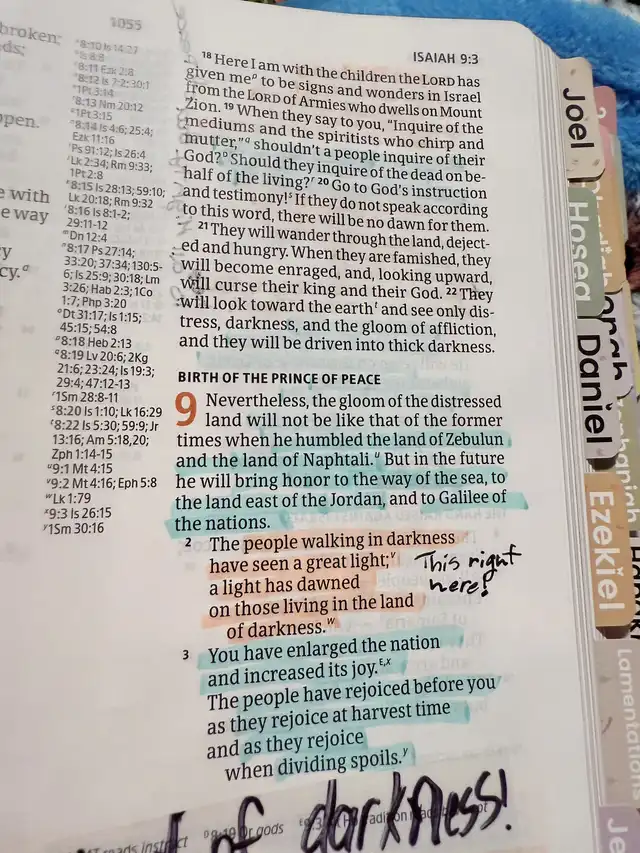 1055
ISAIAH 9:3
broken;
ds;
open.
e with
e way
y
cy.ᵃ
8:10 Is 14:27
8:8
8:11 Ezk 2:8
8:12 Is 7:2; 30:1
1Pt 3:14
8:13 Nm 20:12
1Pt 3:15
8:14 Is 4:6; 25:4;
Ezk 11:16
Ps 91:12; Is 26:4
Lk 2:34; Rm 9:33;
1Pt 2:8
8:15 Is 28:13; 59:10;
Lk 20:18; Rm 9:32
8:16 Is 8:1-2;
29:11-12
ᵐDn 12:4
8:17 Ps 27:14;
33:20; 37:34; 130:5-
6; Is 25:9; 30:18; Lm
3:26; Hab 2:3; 1Co
1:7; Php 3:20
Dt 31:17; Is 1:15;
45:15; 54:8
8:18 Heb 2:13
8:19 Lv 20:6; 2Kg
21:6; 23:24; Is 19:3;
29:4; 47:12-13
ʳ1Sm 28:8-11
ˢ8:20 Is 1:10; Lk 16:29
ᵗ8:22 Is 5:30; 59:9; Jr
13:16; Am 5:18,20;
Zph 1:14-15
ᵘ9:1 Mt 4:15
ᵛ9:2 Mt 4:16; Eph 5:8
ʷLk 1:79
ˣ9:3 Is 26:15
ʸ1Sm 30:16
18 Here I am with the children the LORD has
given meᵖ to be signs and wonders in Israel
from the LORD of Armies who dwells on Mount
Zion. 19 When they say to you, "Inquire of the
mediums and the spiritists who chirp and
mutter," shouldn't a people inquire of their
God? Should they inquire of the dead on be-
half of the living?ʳ 20 Go to God's instruction
and testimony!ˢ If they do not speak according
to this word, there will be no dawn for them.
21 They will wander through the land, deject-
ed and hungry. When they are famished, they
will become enraged, and, looking upward,
will curse their king and their God. 22 They
will look toward the earthᵗ and see only dis-
tress, darkness, and the gloom of affliction,
and they will be driven into thick darkness.
BIRTH OF THE PRINCE OF PEACE
9 Nevertheless, the gloom of the distressed
land will not be like that of the former
times when he humbled the land of Zebulun
and the land of Naphtali.ᵘ But in the future
he will bring honor to the way of the sea, to
the land east of the Jordan, and to Galilee of
the nations.
2 The people walking in darkness
have seen a great light;ᵛ
a light has dawned
on those living in the land
of darkness.ʷ
This right
here!
3 You have enlarged the nation
and increased its joy.ᴱ,ˣ
The people have rejoiced before you
as they rejoice at harvest time
and as they rejoice
when dividing spoils.ʸ
of darkness!
reads instruct
8:19 Or gods
Joel
Hosea
Daniel
Ezekiel
Lamentations
Je